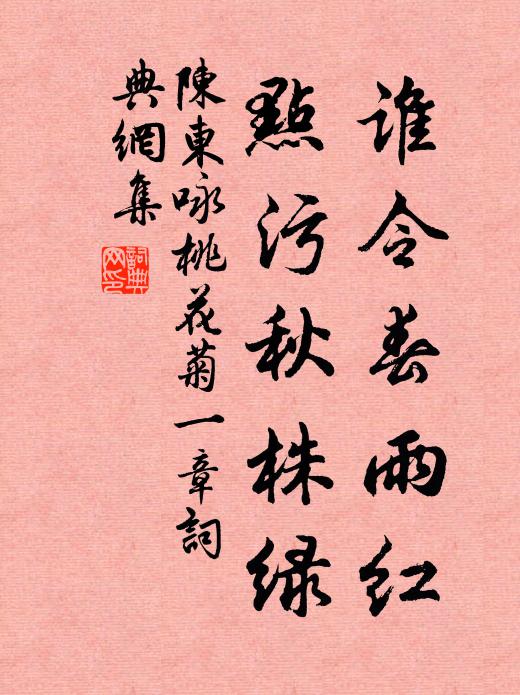 誰令春雨紅
點污秋株綠
陳東咏桃花菊一章詞
典網集
詞典網印